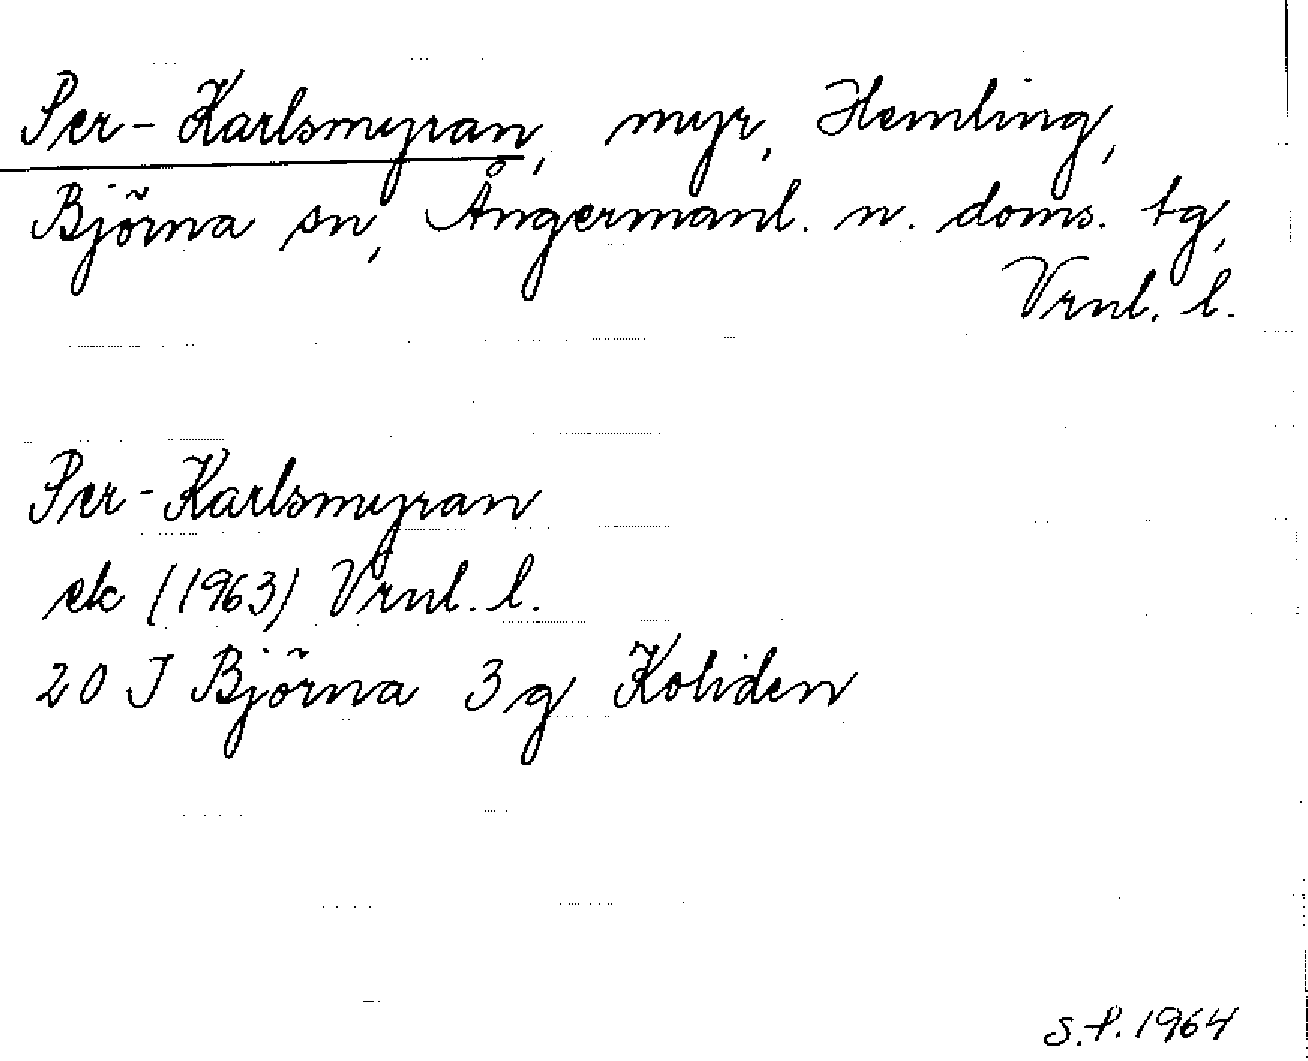 Per-Karlsmyran, myr, Hemling,
Björna sn, Ångermanl. n. doms. tg,
Vrnl. l.
Per-Karlsmyran
ek (1963) Vrnl. l.
20 J Björna 3g Koliden
S.P. 1964